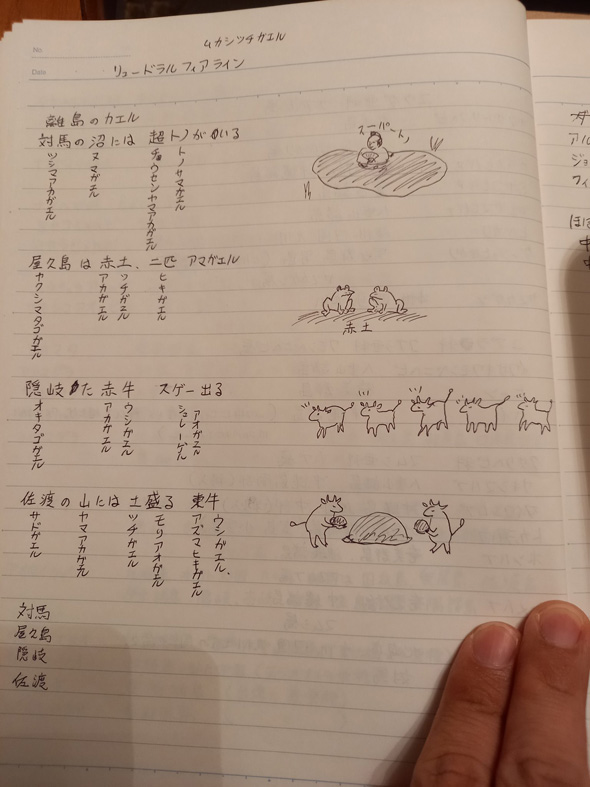 No.
ムカシツチガエル
Date
リュードラルフィアライン
離島のカエル
対馬の沼には 超トノがいる
ツシマアカガエル
ヌマガエル
チョウセンヤマアカガエル
トノサマガエル
スーパートノ
屋久島は赤土、二匹 アマガエル
ヤクシマタゴガエル
アカガエル
ツチガエル
ヒキガエル
赤土
隠岐た赤牛 スゲー出る
オキタゴガエル
アカガエル
ウシガエル
シュレーゲル
アオガエル
佐渡の山には土盛る 東牛
サドガエル
ヤマアカガエル
ツチガエル
モリアオガエル
アズマヒキガエル
ウシガエル.
対馬
屋久島
隠岐
佐渡
アル
ジョ
フィ
ほほ